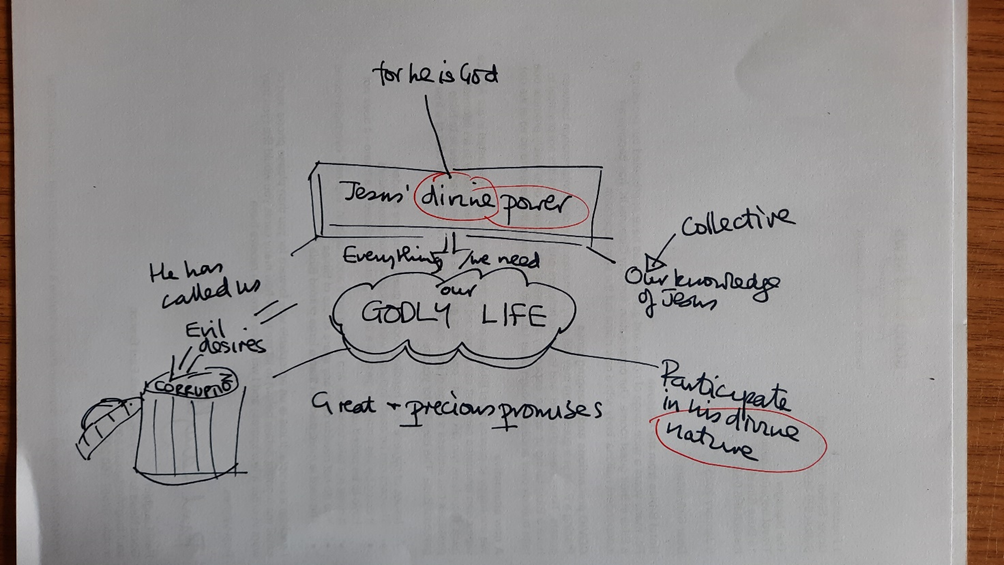 for he is God
Jesus' divine power
Collective
Everything we need
He has
called us
Our knowledge
of Jesus
our
GODLY LIFE
Evil
desires
CORRUPTIO
Participate
in his divine
nature
Great + precious promises